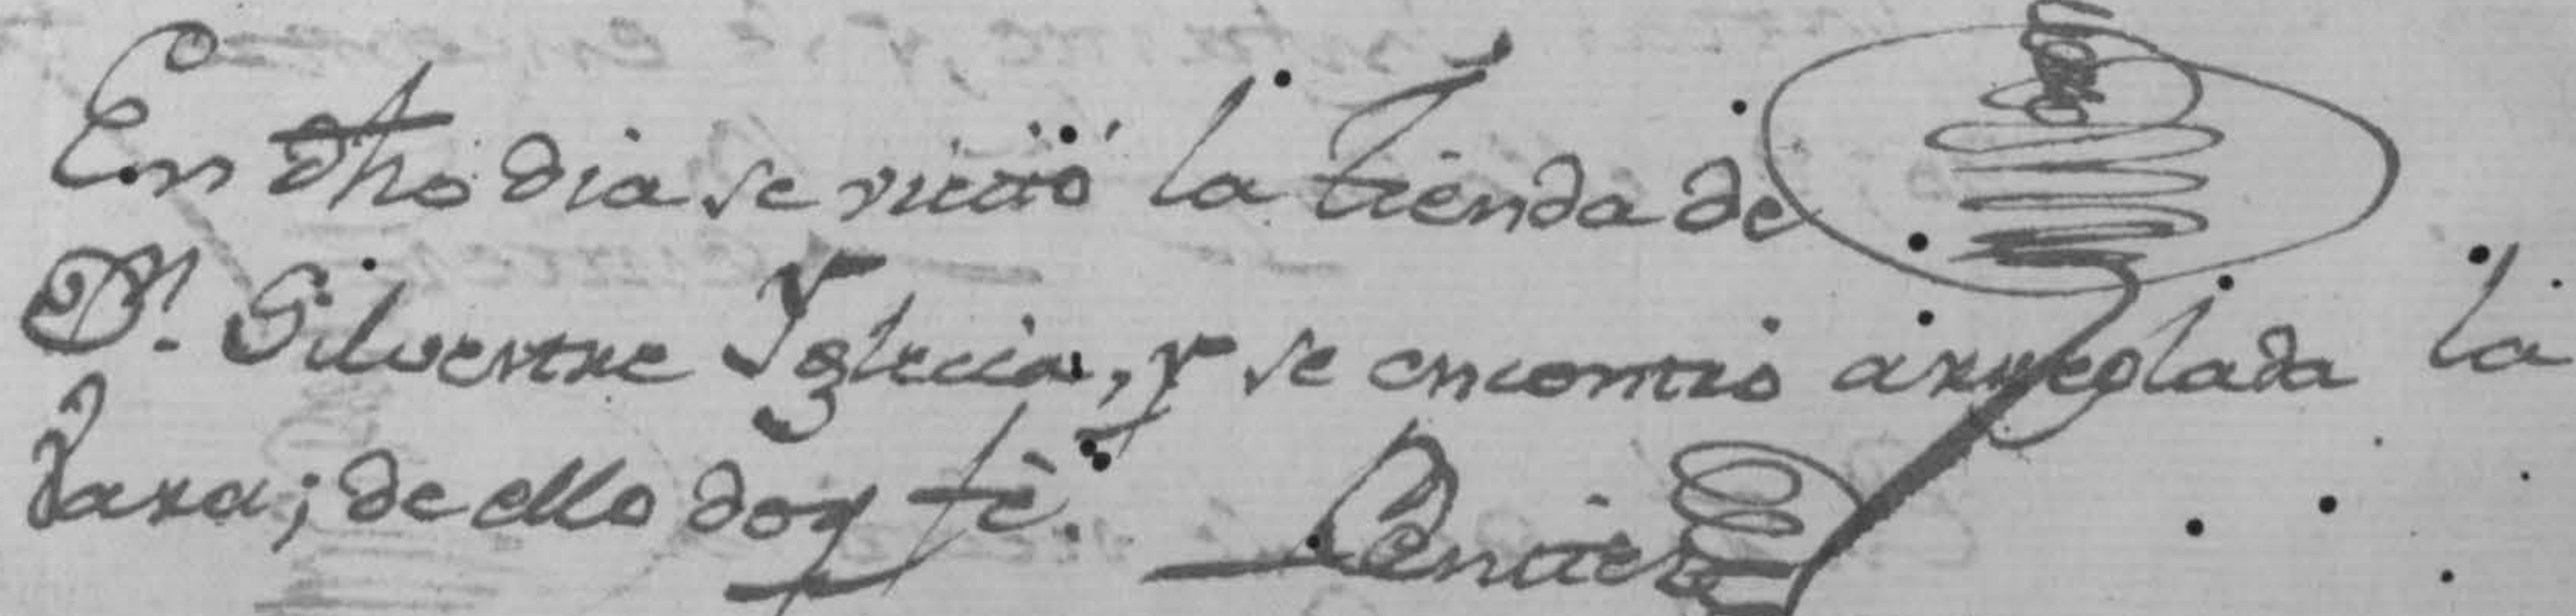 En dho dia se vicitó la tienda de
Dn. Silvestre Yglecia, y se encontro arreglada la
Vara; de ello doy fè.